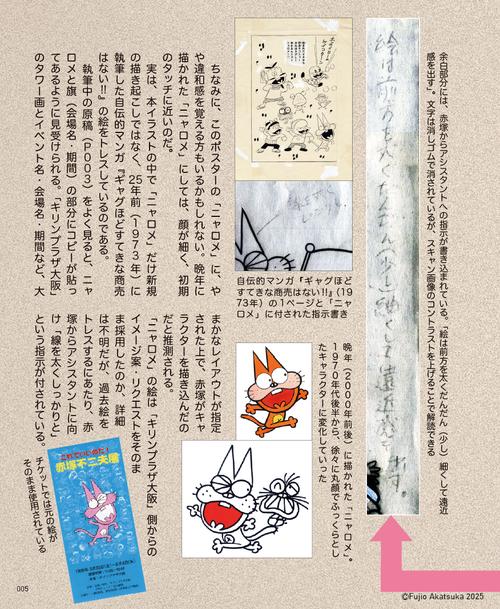 余白部分には、赤塚からアシスタントへの指示が書き込まれている。「絵は前方を太くだんだん（少し）細くして遠近
感を出す」。文字は消しゴムで消されているが、スキャン画像のコントラストを上げることで解読できる
絵は前方を太くだんだん（少し）細くして遠近感を出す。
自伝的マンガ『ギャグほど
すてきな商売はない!!』（19
73年）の1ページと「ニャ
ロメ」に付された指示書き
ちなみに、このポスターの「ニャロメ」に、や
や違和感を覚える方もいるかもしれない。晩年に
描かれた「ニャロメ」にしては、顔が細く、初期
のタッチに近いのだ。
実は、本イラストの中で「ニャロメ」だけ新規
の描き起こしではなく、25年前（1973年）に
執筆した自伝的マンガ『ギャグほどすてきな商売
はない!!』の絵をトレスしているのである。
執筆中の原稿（P003）をよく見ると、ニャ
ロメと旗（会場名・期間）の部分にコピーが貼っ
てあるように見受けられる。「キリンプラザ大阪」
のタワー画とイベント名・会場名・期間など、大
晩年（2000年前後）に描かれた「ニャロメ」。
1970年代後半から、徐々に丸顔でふっくらとし
たキャラクターに変化していった
まかなレイアウトが指定
された上で、赤塚がキャ
ラクターを描き込んだの
だと推測される。
「ニャロメ」の絵は「キリンプラザ大阪」側からの
イメージ案・リクエストをそのま
ま採用したのか、詳細
は不明だが、過去絵を
トレスするにあたり、赤
塚からアシスタントに向
け「線を太くしっかりと」
という指示が付されている。
これでいいのだ！
赤塚不二夫展
チケットでは元の絵が
そのまま使用されている
005
©Fujio Akatsuka 2025